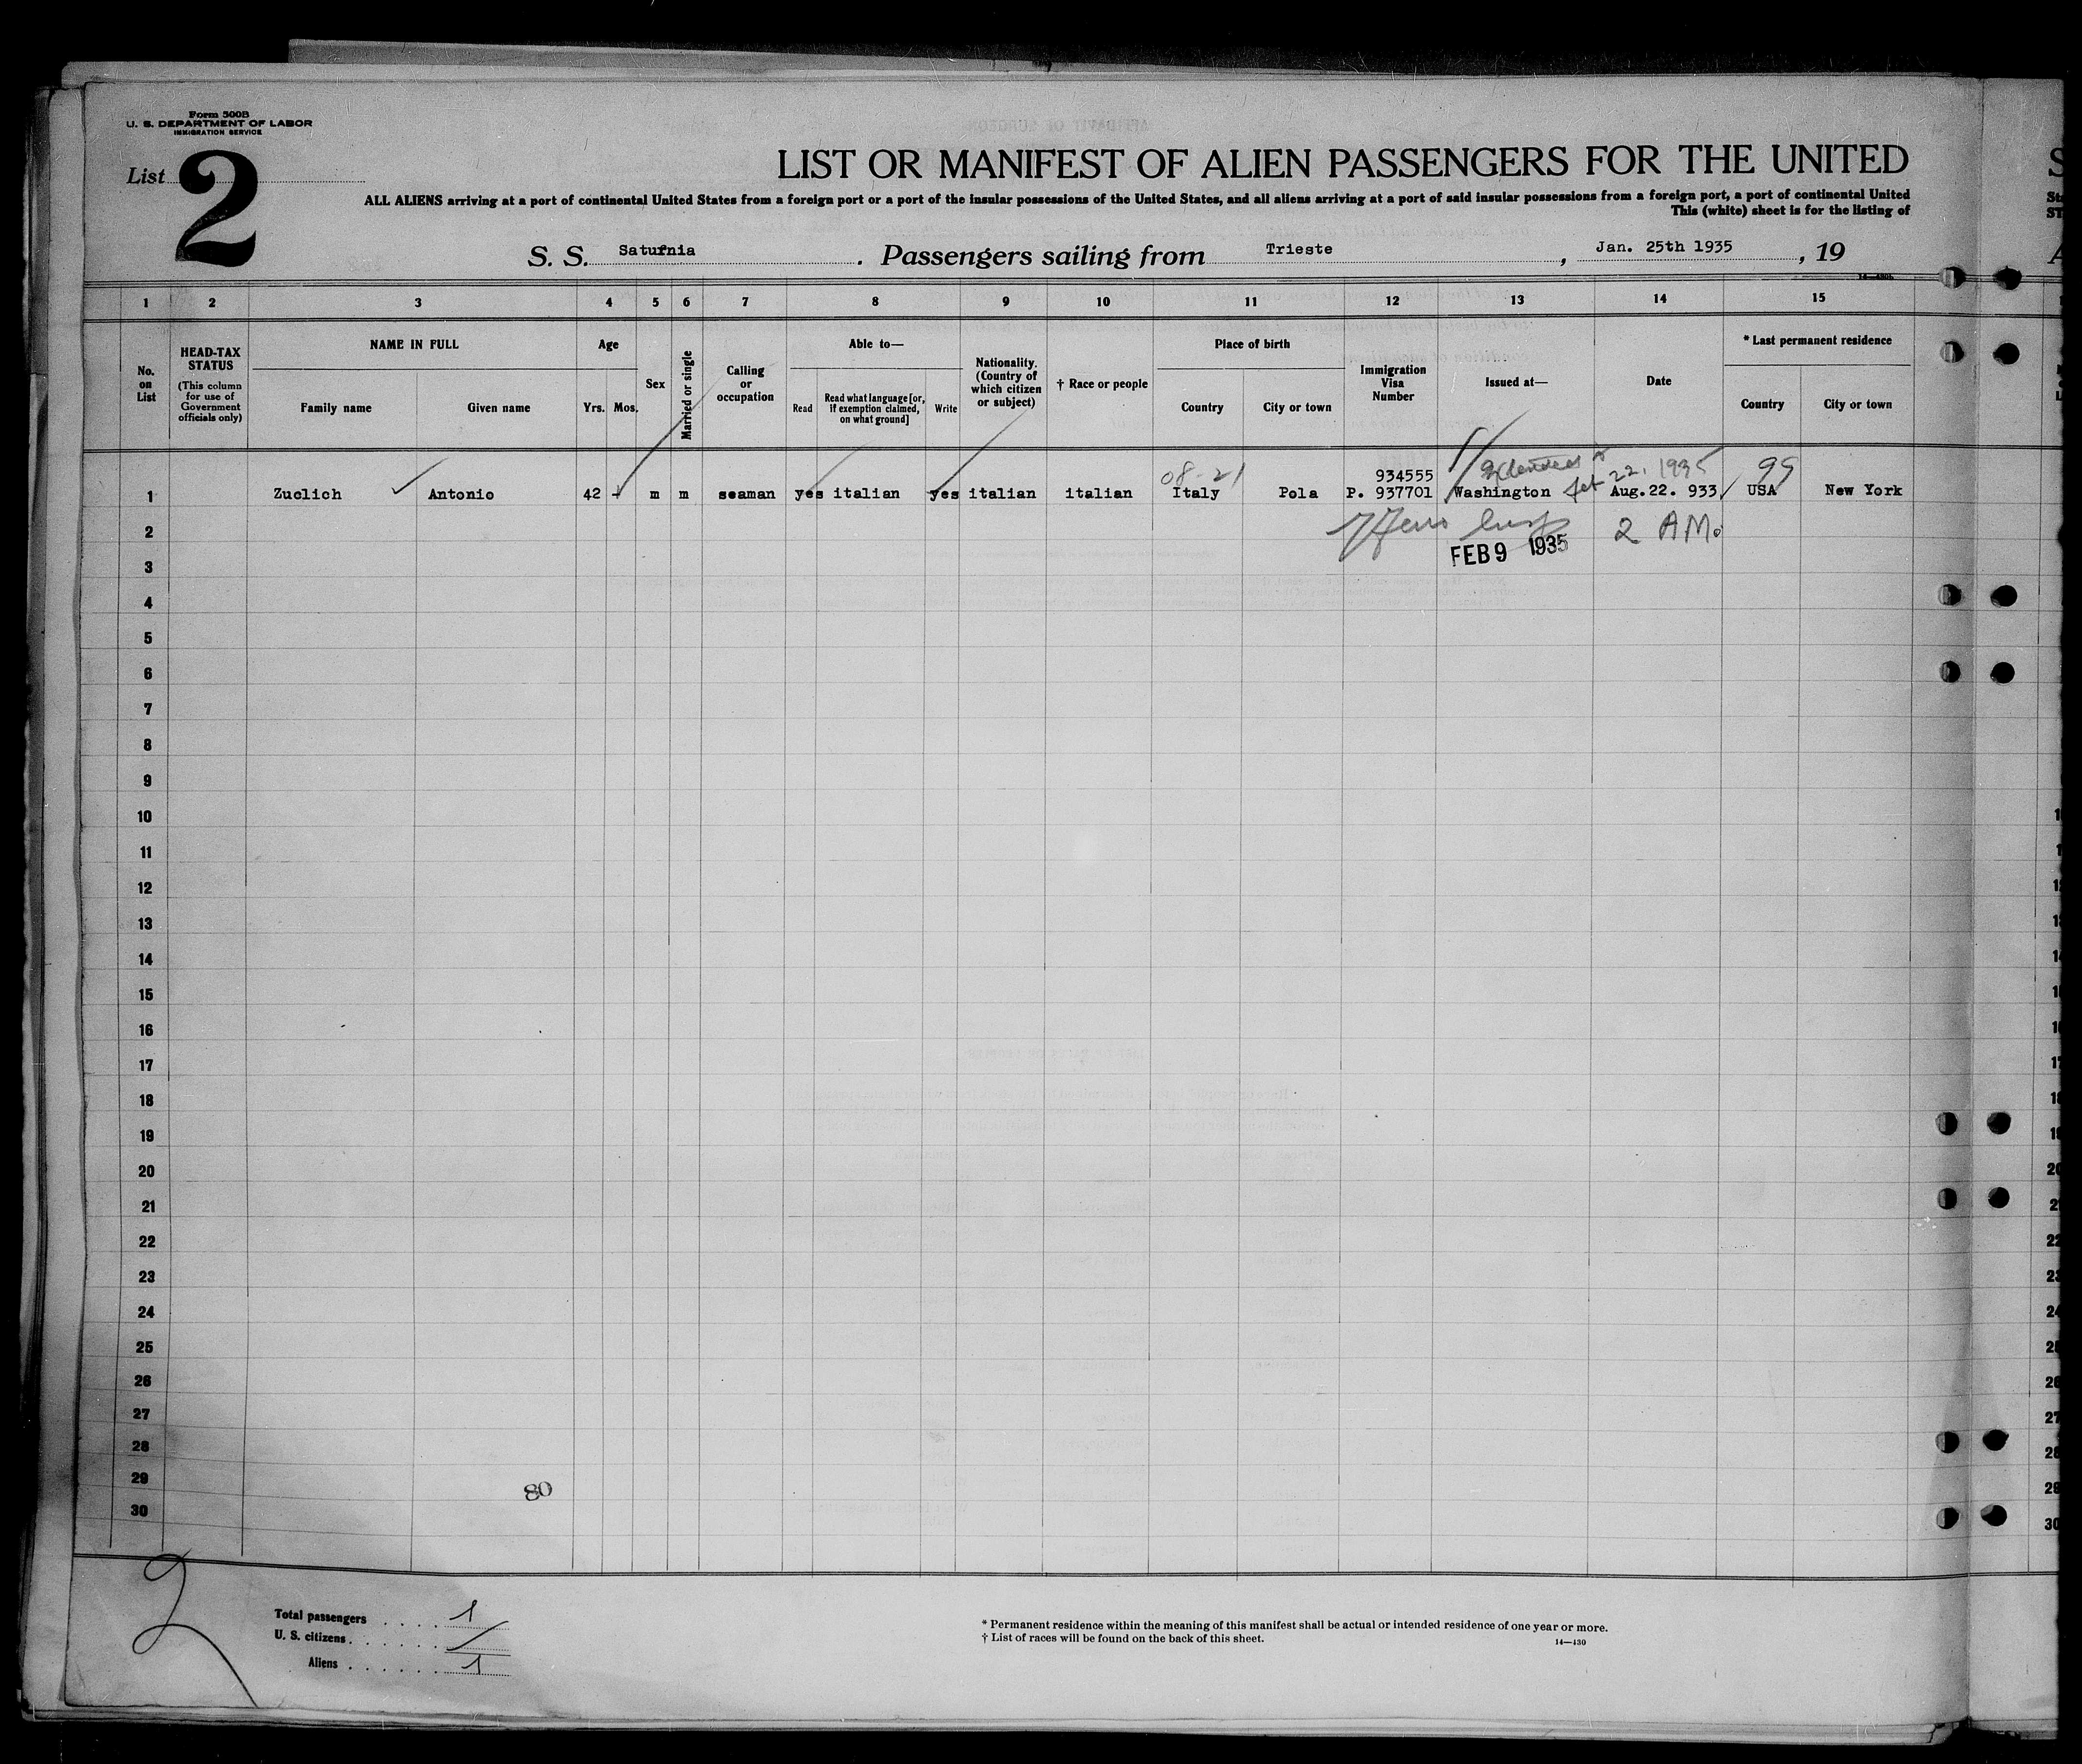 Form 500B
U. S. DEPARTMENT OF LABOR
IMMIGRATION SERVICE
List 2
LIST OR MANIFEST OF ALIEN PASSENGERS FOR THE UNITED
ALL ALIENS arriving at a port of continental United States from a foreign port or a port of the insular possessions of the United States, and all aliens arriving at a port of said insular possessions from a foreign port, a port of continental United
This (white) sheet is for the listing of
S. S. Saturnia. Passengers sailing from Trieste, Jan. 25th 1935, 19
1 2 3 4 5 6 7 8 9 10 11 12 13 14 15
No. on List
HEAD-TAX STATUS
(This column for use of Government officials only)
NAME IN FULL
Family name Given name
Age
Yrs. Mos.
Sex
Married or single
Calling or occupation
Able to—
Read
Read what language [or, if exemption claimed, on what ground]
Write
Nationality. (Country of which citizen or subject)
† Race or people
Place of birth
Country City or town
Immigration Visa Number
Issued at—
Date
* Last permanent residence
Country City or town
08-21 934555 22, 1935 99
1 Zuclich Antonio 42 m m seaman yes italian yes italian italian Italy Pola P. 937701 Washington Aug.22. 933 USA New York
2 2 AM.
FEB 9 1935
3
4
5
6
7
8
9
10
11
12
13
14
15
16
17
18
19
20
21
22
23
24
25
26
27
28
29
80
30
2
Total passengers . . . . 1
U. S. citizens . . . . . . /
Aliens . . . . . . 1
* Permanent residence within the meaning of this manifest shall be actual or intended residence of one year or more.
† List of races will be found on the back of this sheet.
14—430